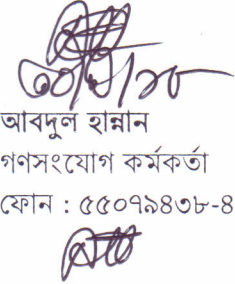 আবদুল হান্নান
গণসংযোগ কর্মকর্তা
ফোন : ৫৫০৭৯৪৩৮-৪